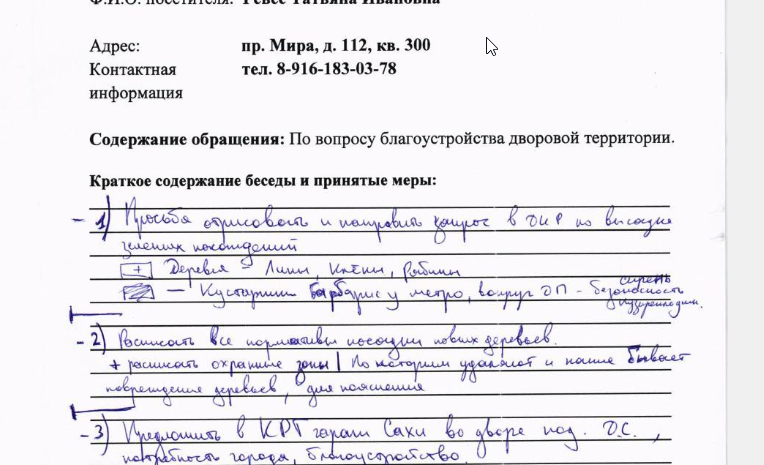 Ф.И.О. посетителя: Гевес Татьяна Ивановна
Адрес: пр. Мира, д. 112, кв. 300
Контактная тел. 8-916-183-03-78
информация
Содержание обращения: По вопросу благоустройства дворовой территории.
Краткое содержание беседы и принятые меры:
- 1) Просьба отрисовать и направить запрос в по высадке
зеленых насаждений
+ Деревья – Липы, Клёны, Рябины
сирень
– Кустарники барбарис у метро, вокруг ОП – безопасность
- 2) Расписать все нормативы посадки новых деревьев.
+ расписать охранные зоны | По которым удаляют и какие бывает
повреждение деревьев, для пояснения
- 3) Предложить в КРТ гаражи во дворе под. О.С.,
потребность города, благоустройство.